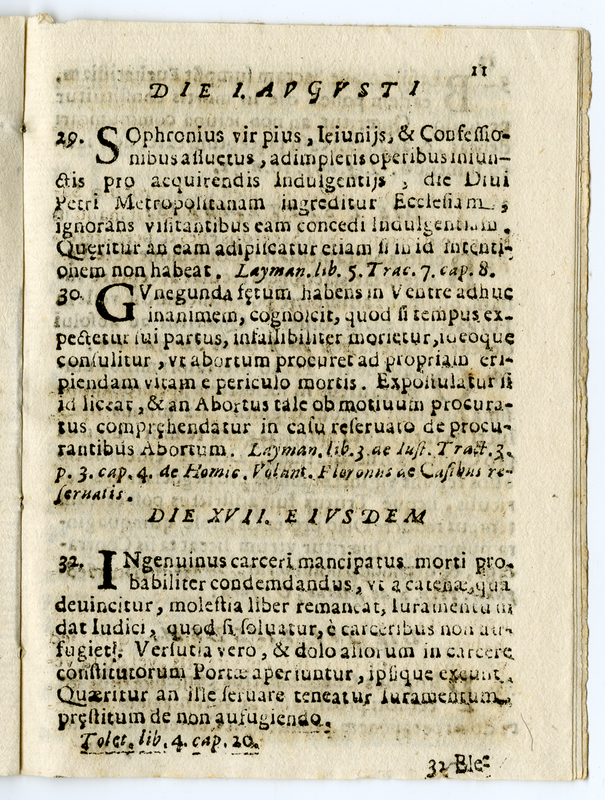 11
DIE I. AVGVSTI
29. SOphronius vir pius, Ieiunijs, & Confessio-
nibus assuetus, adimpletis operibus iniun-
ctis pro acquirendis Indulgentijs, die Diui
Petri Metropolitanam ingreditur Ecclesiam,
ignorans visitantibus eam concedi Indulgentiam.
Quęritur an eam adipiscatur etiam si in id intenti-
onem non habeat. Layman. lib. 5. Trac. 7. cap. 8.
30. GVnegunda fętum habens in Ventre adhuc
inanimem, cognoscit, quod si tempus ex-
pectetur sui partus, infallibiliter morietur, ideoque
consulitur, vt abortum procuret ad propriam eri-
piendam vitam e periculo mortis. Expostulatur si
id liceat, & an Abortus tale ob motiuum procura-
tus compręhendatur in casu reseruato de procu-
rantibus Abortum. Layman. lib. 3. de Iust. Tract. 3.
p. 3. cap. 4. de Homic. Volunt. Floronus de Casibus re-
seruatis.
DIE XVII. EIVSDEM
32. INgenuinus carceri mancipatus morti pro-
babiliter condemdandus, vt a catena, qua
deuincitur, molestia liber remaneat, Iuramentum
dat Iudici, quod si soluatur, è carceribus non au-
fugiet. Versutia vero, & dolo aliorum in carcere
constitutorum Portæ aperiuntur, ipsique exeunt.
Quæritur an ille seruare teneatur Iuramentum,
pręstitum de non aufugiendo.
Tolet. lib. 4. cap. 20.
32 Ble-